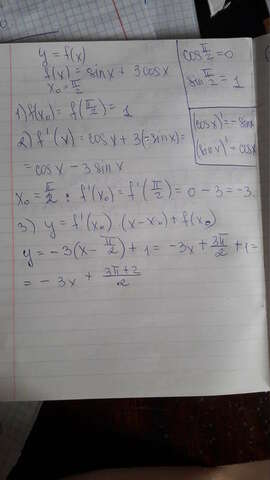 y = f(x)
f(x) = sinx + 3cosx
x₀ = π/2
cos π/2 = 0
sin π/2 = 1
1) f(x₀) = f(π/2) = 1
(cosx)' = -sinx
(sinx)' = cosx
2) f'(x) = cosx + 3(-sinx) =
= cosx - 3sinx
x₀ = π/2 : f'(x₀) = f'(π/2) = 0 - 3 = -3.
3) y = f'(x₀) · (x - x₀) + f(x₀)
y = -3(x - π/2) + 1 = -3x + 3π/2 + 1 =
= -3x + (3π+2)/2